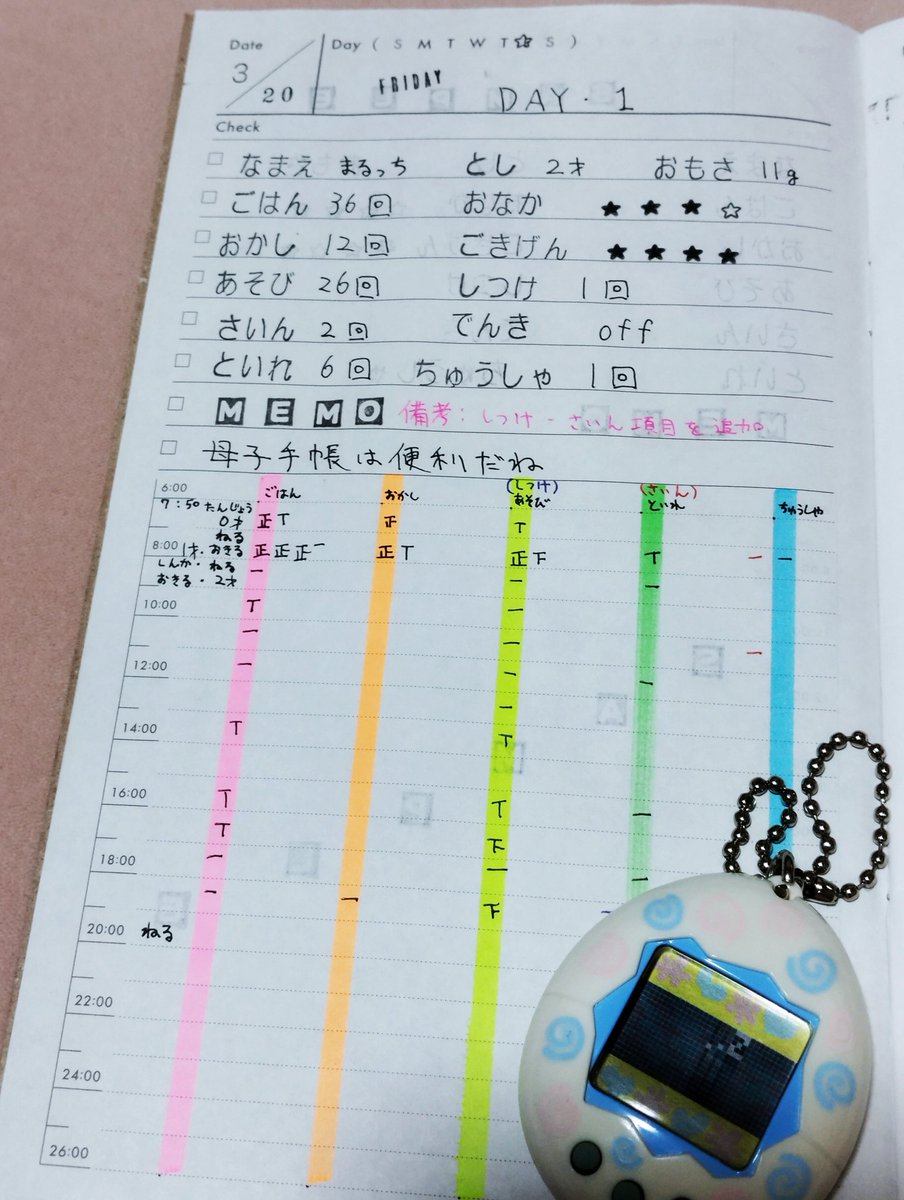 Date
Day ( S M T W T ☆ S )
3/20 FRIDAY DAY・1
Check
なまえ まるっち とし 2才 おもさ 11g
ごはん 36回 おなか ★ ★ ★ ☆
おかし 12回 ごきげん ★ ★ ★ ★
あそび 26回 しつけ 1回
さいん 2回 でんき off
といれ 6回 ちゅうしゃ 1回
MEMO 備考:しつけ・さいん項目を追加。
母子手帳は便利だね
(しつけ) (さいん)
6:00 ごはん おかし あそび といれ ちゅうしゃ
7:50 たんじょう
0才 正 T 正 T
ねる
8:00 1才・おきる 正 正 正 一 正 T 正 下 T 一 一
しんか・ねる 一
おきる・2才 一 一
10:00 T 一
一 一
12:00 一 一 一 一
一
14:00 T T
16:00 T T 一
T 下
18:00 一 一 一
一 一 下
20:00 ねる
22:00
24:00
26:00